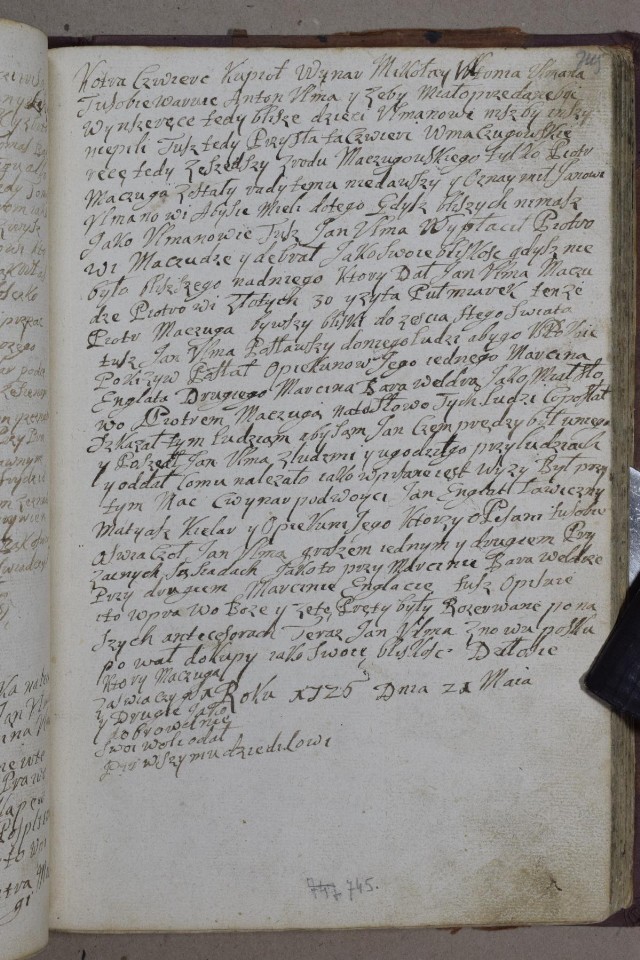 745
Kotrą Czwierc Kupieł Wynar Mikołay Ułomia Ulmana
Tu sobie waruie Anton Ulma y Zeby Miało przedane być
Wynszé ręce tedy blisze dzieci Ulmanowe niszby inszy
niepili Tusz tedy Przyszła ta Czwierc Wmaczugowskie
ręce tedy Zeszedszy Zrodu Maczugowskiego tylko Piotr
Maczuga Zostały rady temu niedawszy y Oznaymił Janowi
Ulmanowi Abysie Mieli do tego Gdysz bliszych nimasz
Jako Ulmanowie Tusz Jan Ulma Wypłacił Piotro
wi Maczudze y odebrał Jako swoie bliskosc gdysz nie
było bliszszego nad niego Ktory Dał Jan Ulma Maczu
dze Piotrowi Złotych 30 y zyta Pułmiarek tenże
Piotr Maczuga bywszy bliski do ześcia stego Swiata
tusz Jan Ulma Posławszy do niego ludzi abygo
Posłał Opiekunow Jego iednego Marcina
Englota Drugiego Marcina Bara weldra Jako Miał
wo Piotrem Maczugą na to słowo Tych ludzi
Zkazał tym ludziom zby sam Jan Czemprędzy był uniego
y Poszedł Jan Ulma Zludzmi y ugodziłgo przy ludziach
y oddał Comu nalezało iako wpisane iest Wyzy Był przy
tym Mac Cwynar podwoyci Jan Englot Ławiczny
Matyasz Kielar y Opiekuni Jego Ktorzy opisani tu sobie
oswiaczoł Jan Ulma groszem iednym y drugiem Przy
zacnych Sąsiadach Jako to przy Marcinie Bara weldze
Przy drugiem Marcinie Englocie tusz Opisuie
ito wprawo Boże y zetę Pręty były Rozerwane po na
szych antecesorach Teraz Jan Ulma Znowu posku
pował do kupy iako swoię bliskosc Działosie
Roku 1725 Dnia 21 Maia
Ktory Maczuga
zaswiaczył
y Drugie Jako
dobrowolnie
swoi woli odał
Pirwszymu dziedzicowi
745.